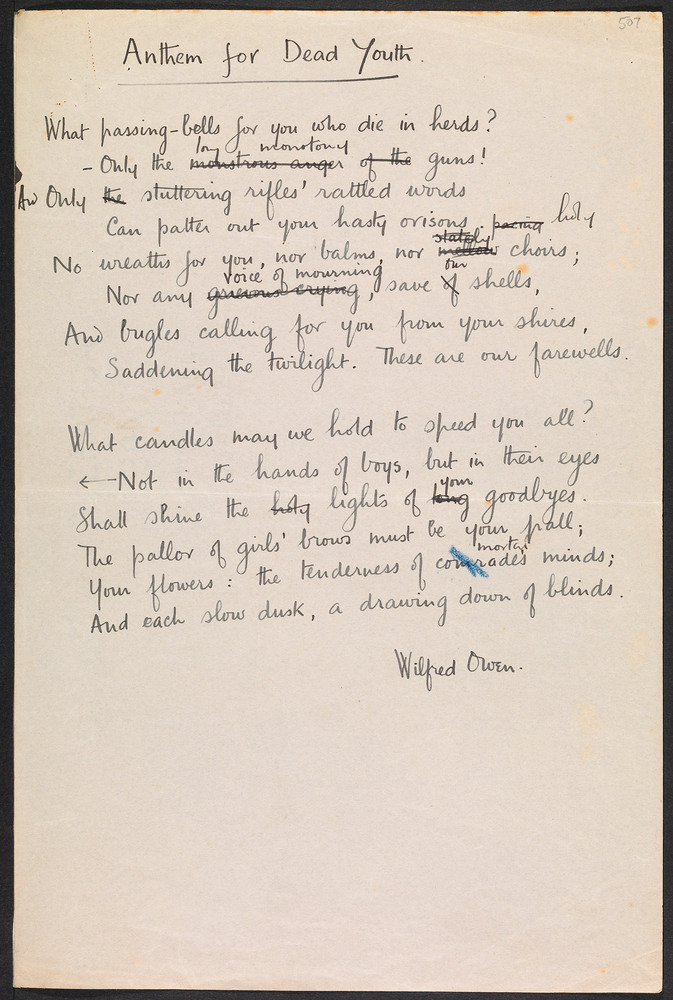 507
Anthem for Dead Youth.
What passing-bells for you who die in herds?
long monotony
- Only the monstrous anger of the guns!
And Only the stuttering rifles' rattled words
Can patter out your hasty orisons. pacing holy
stately
No wreaths for you, nor balms, nor mellow choirs;
voice of mourning our
Nor any grievous crying, save of shells,
And bugles calling for you from your shires,
Saddening the twilight. These are our farewells.
What candles may we hold to speed you all?
←Not in the hands of boys, but in their eyes
your
Shall shine the holy lights of long goodbyes.
The pallor of girls' brows must be your pall;
mortal
Your flowers: the tenderness of comrades minds;
And each slow dusk, a drawing down of blinds.
Wilfred Owen.